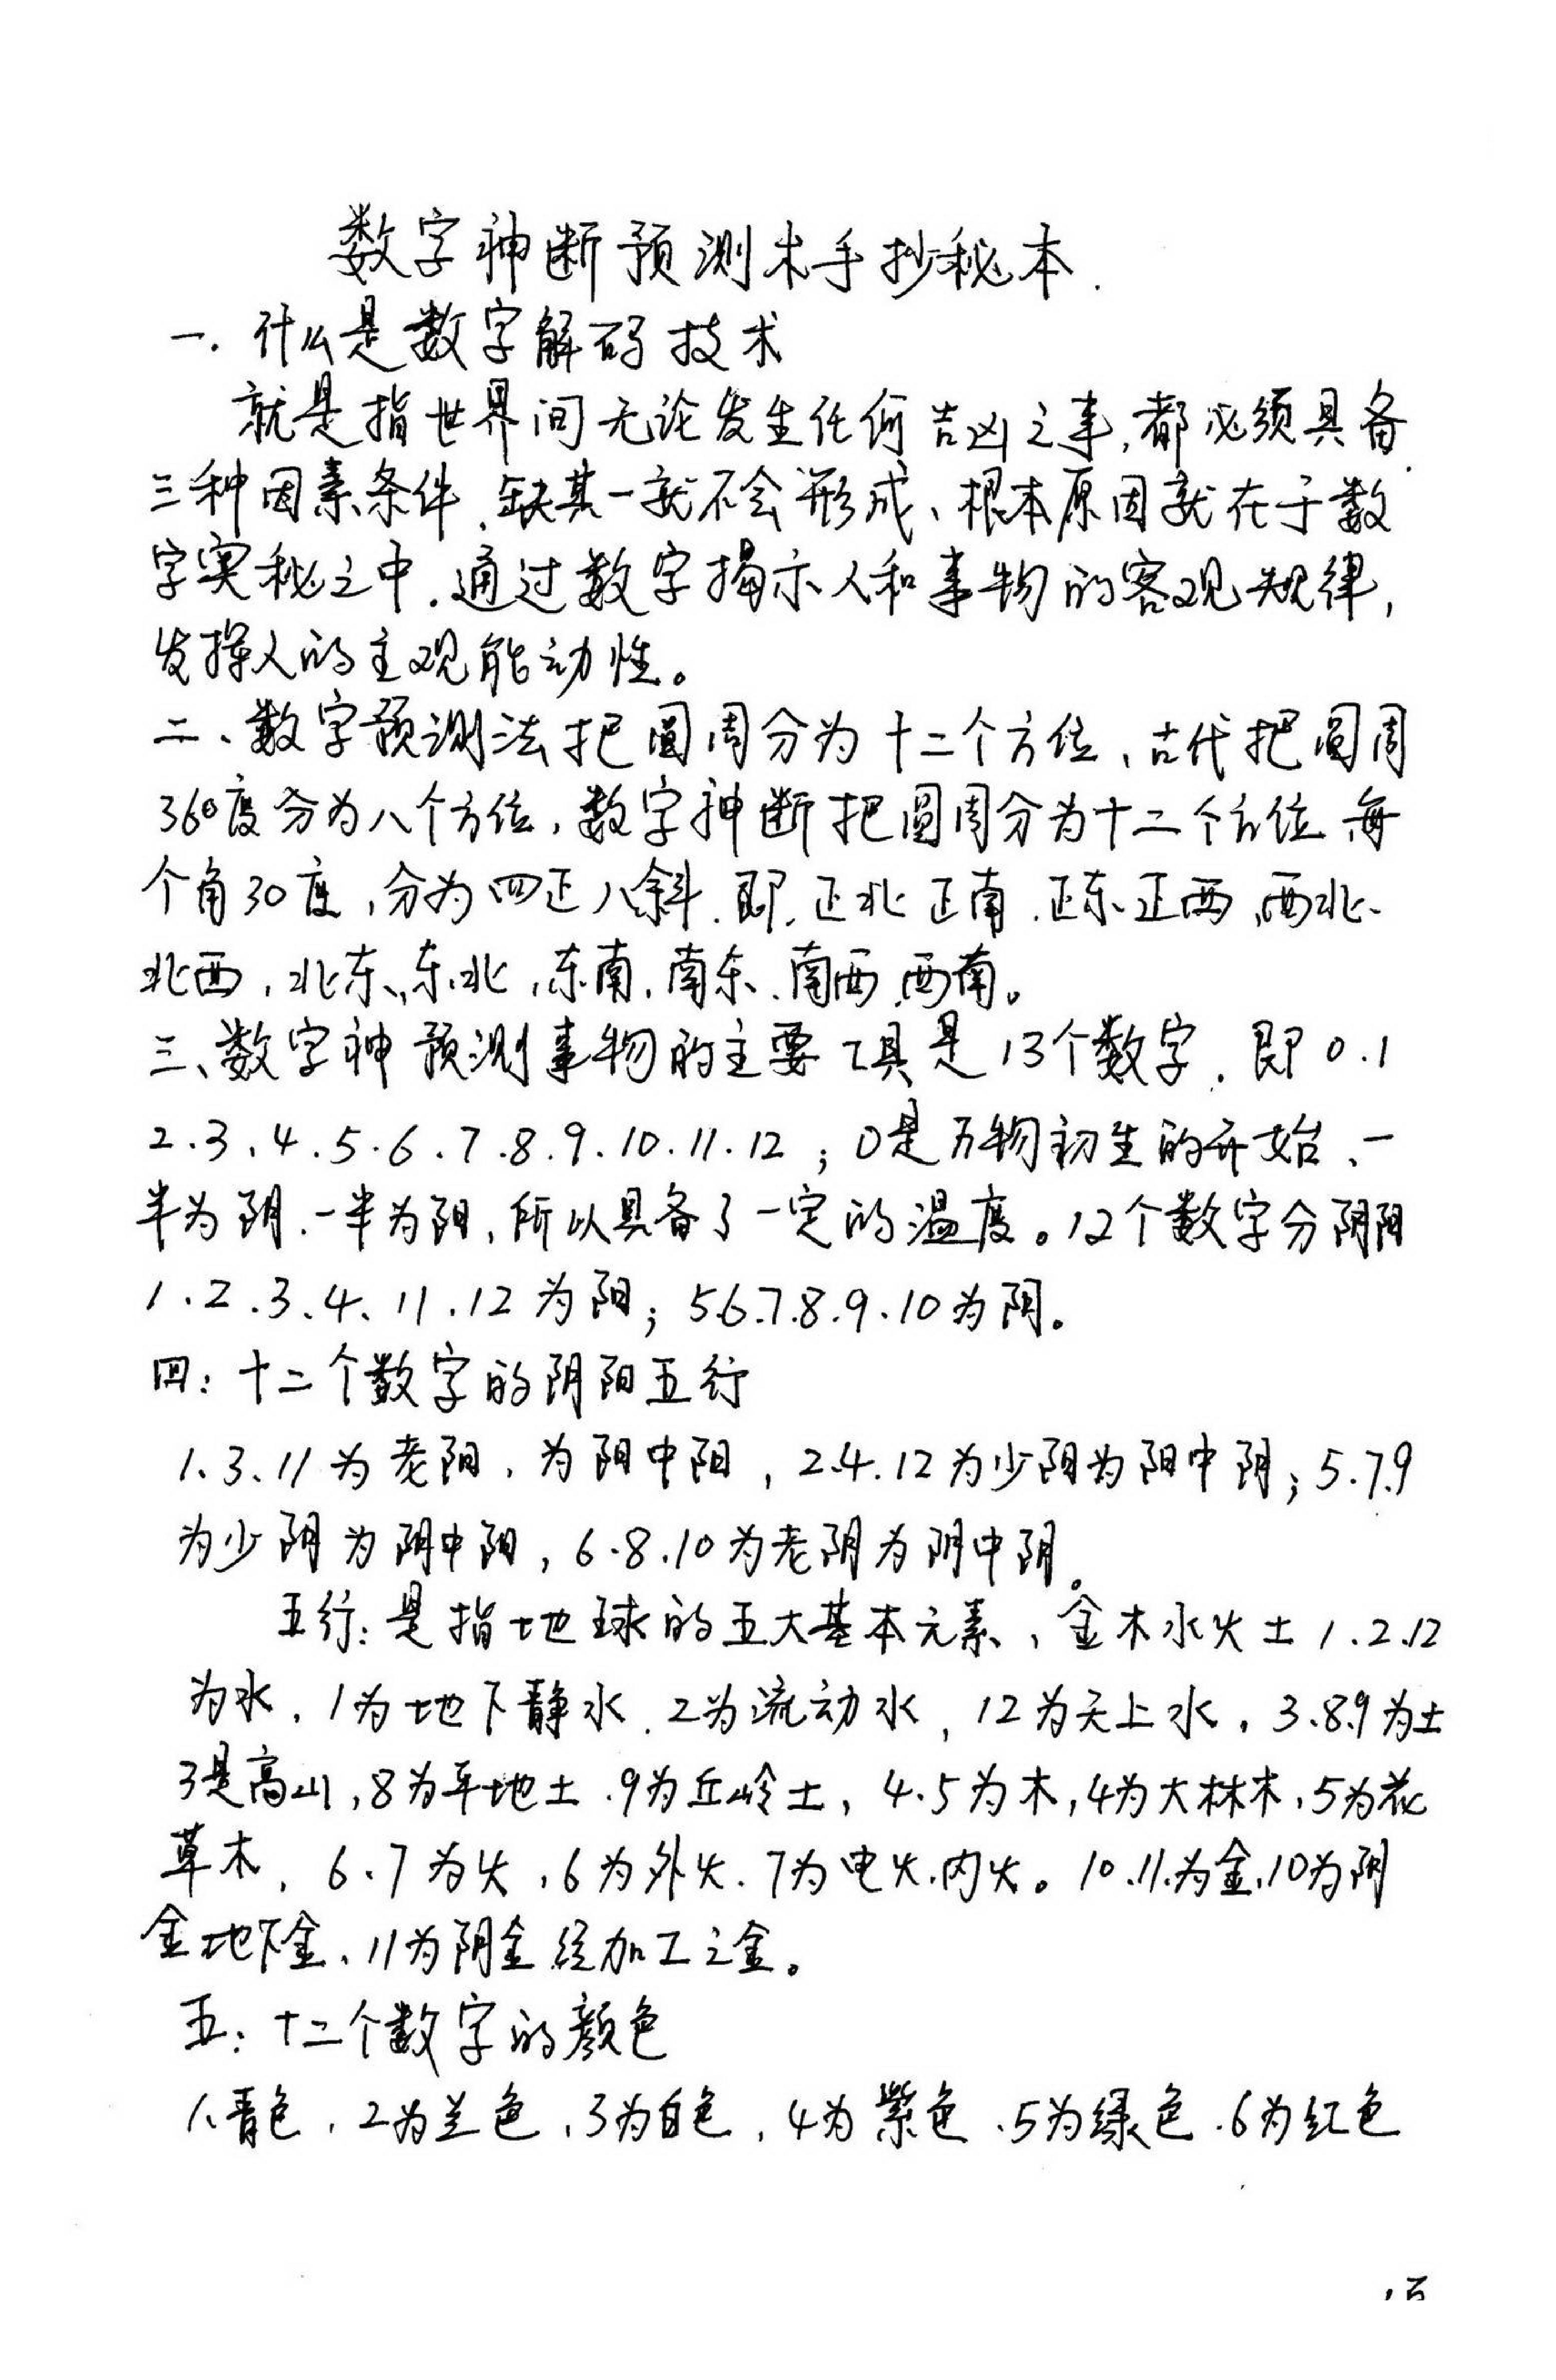 数字神断预测术手抄秘本.
一.什么是数字解码技术
就是指世界间无论发生任何吉凶之事,都必须具备
三种因素条件、缺其一就不会形成、根本原因就在于数
字奥秘之中.通过数字揭示人和事物的客观规律,
发挥人的主观能动性。
二、数字预测法把圆周分为十二个方位、古代把圆周
360度分为八个方位,数字神断把圆周分为十二个方位 每
个角30度,分为四正八斜.即.正北 正南.正东、正西、西北、
北西,北东、东北,东南,南东、南西、西南。
三、数字神 预测事物的主要工具是13个数字.即0.1
2.3.4.5.6.7.8.9.10.11.12;0是万物初生的开始、一
半为阴.一半为阳,所以具备了一定的温度。12个数字分阴阳
1.2.3.4、11.12为阳;5.6.7.8.9.10为阴。
四:十二个数字的阴阳五行
1、3、11为老阳、为阳中阳,2.4.12为少阳为阳中阴;5.7.9
为少阴为阴中阳,6.8.10为老阴为阴中阴。
五行:是指地球的五大基本元素、金木水火土1.2.12
为水,1为地下静水.2为流动水,12为天上水。3.8.9为土
3是高山,8为平地土.9为丘岭土,4.5为木,4为大林木,5为花
草木,6、7为火,6为外火.7为电火.内火。10.11.为金,10为阴
金地下金、11为阳金经加工之金。
五:十二个数字的颜色
1、青色,2为兰色,3为白色,4为紫色.5为绿色.6为红色